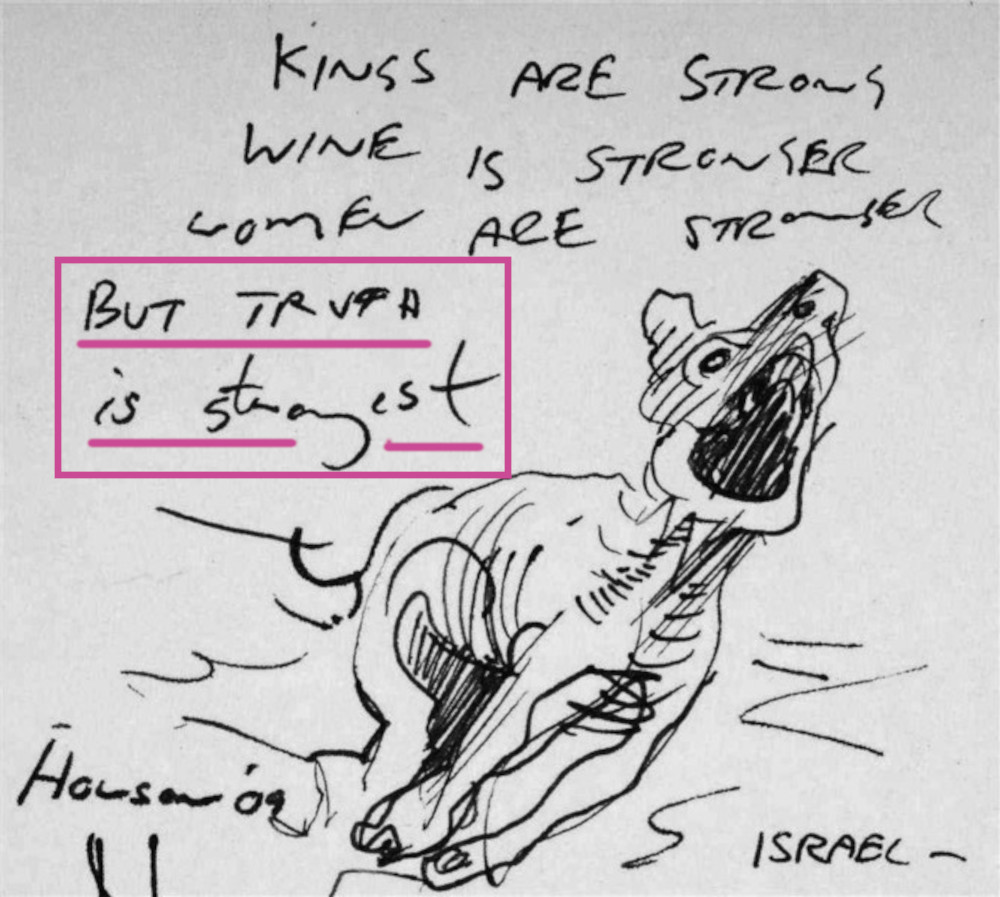 KINGS ARE STRONG
WINE IS STRONGER
WOMEN ARE STRONGER
BUT TRUTH
is strongest
Howson '09
ISRAEL -